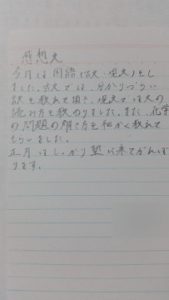 感想文
今月は国語(古文・現文)をし
ました。古文では、分かりづらい
訳を教えて頂き、現文では文の
読み方を教わりました。また、化学
の問題の解き方も細かく教えて
もらいました。
正月はしっかり塾に来てがんば
ります。